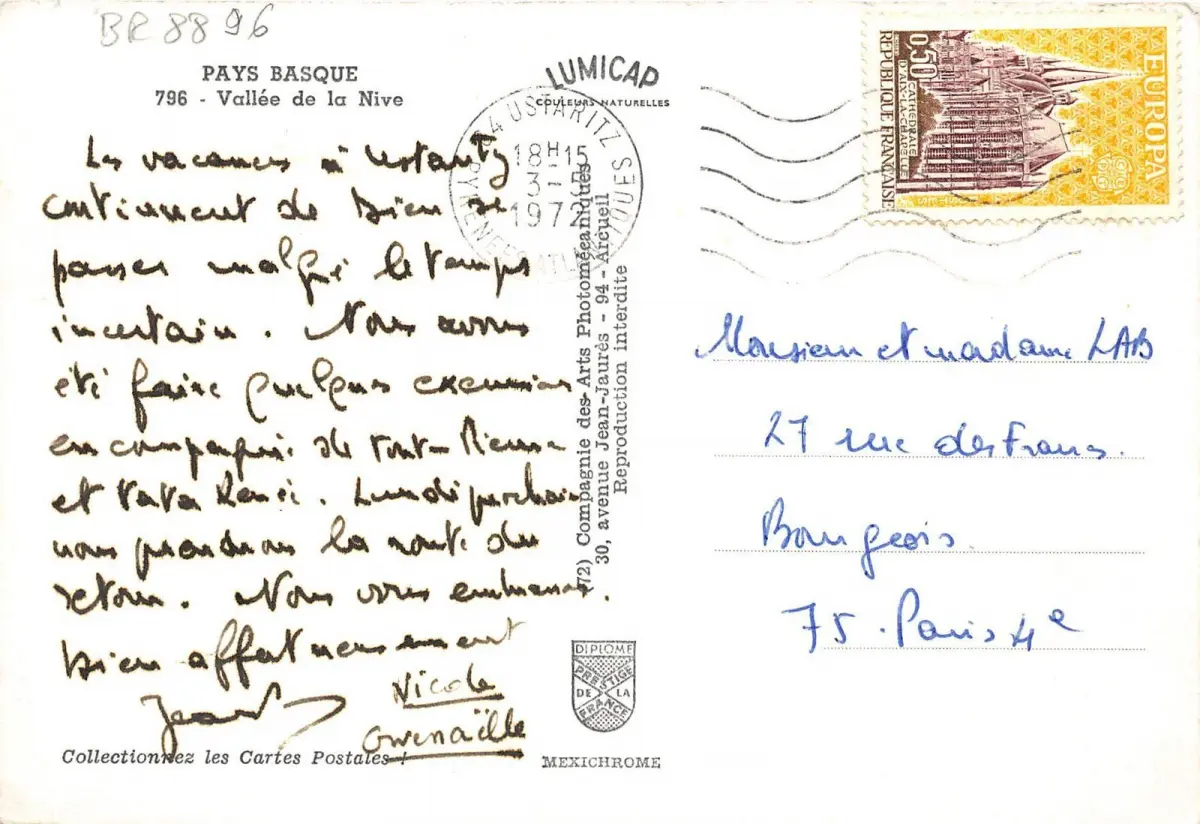 BR 8896
PAYS BASQUE
796 - Vallée de la Nive
Les vacances à
continuent de bien se
passer malgré le temps
incertain. Nous avons
été faire quelques excursions
en compagnie de
et tata René. Lundi prochain
nous prendrons la route du
retour. Nous vous embrassons.
bien affectueusement
Nicole
Gwenaëlle
Collectionnez les Cartes Postales !
LUMICAP
COULEURS NATURELLES
USTARITZ
18H15
3 -
1972
(72) Compagnie des Arts Photomécaniques
30, avenue Jean-Jaurès - 94 - Arcueil
Reproduction interdite
DIPLOME
PRESTIGE
DE LA
FRANCE
MEXICHROME
EUROPA
CEPT
0,50
CATHÉDRALE
D'AIX-LA-CHAPELLE
REPUBLIQUE FRANÇAISE
Monsieur et madame LAB
27 rue des Francs.
Bourgeois.
75. Paris 4e